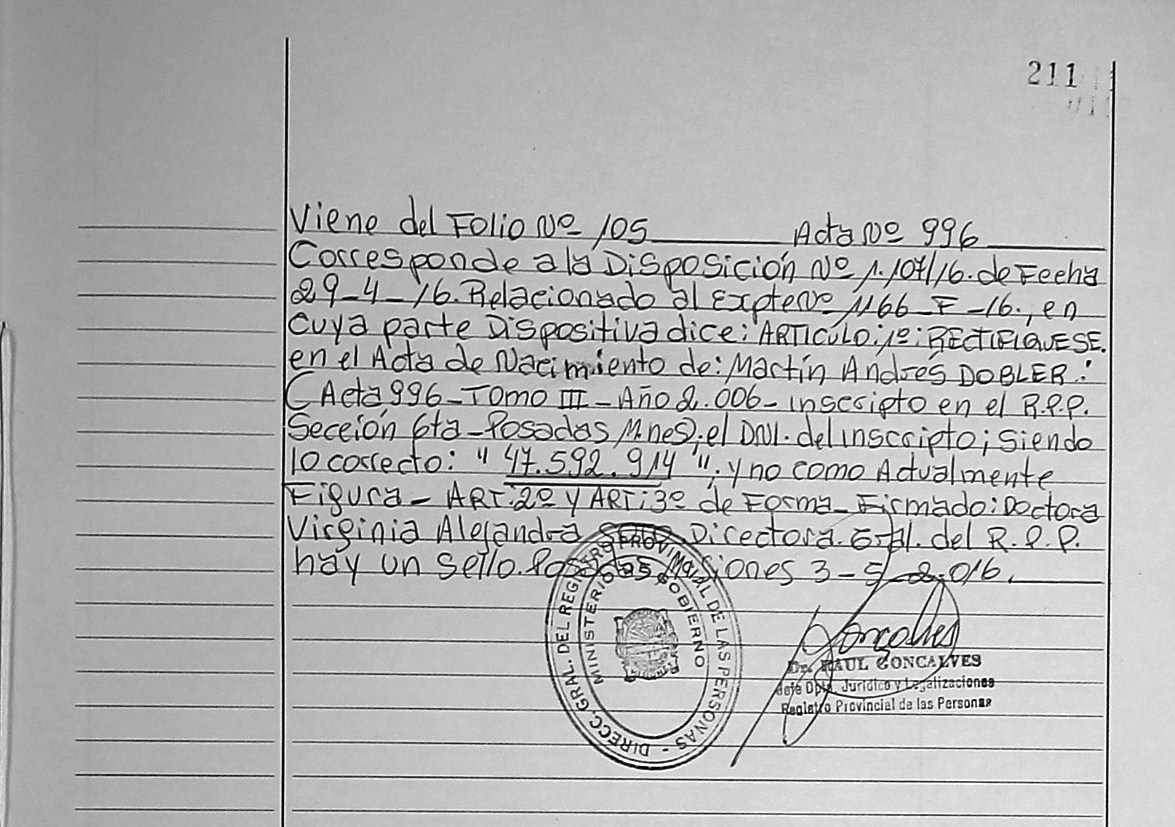 211
Viene del Folio Nº 105 Acta Nº 996
Corresponde a la Disposición Nº 1.107/16. de Fecha
29-4-16. Relacionado al Expte Nº 1166-F-16., en
cuya parte Dispositiva dice: ARTICÚLO: 1º: RECTIFIQUESE.
en el Acta de Nacimiento de: Martín Andrés DOBLER:
(Acta 996-Tomo III-Año 2.006- inscripto en el R.P.P.
Sección 6ta-Posadas Mnes); el DNI. del inscripto; siendo
lo correcto: "47.592.914"; y no como Actualmente
Figura- ART: 2º y ART: 3º de Forma- Firmado: Doctora
Virginia Alejandra Directora Gral. del R.P.P.
hay un sello. Posadas Misiones 3-5-2.016.
DIRECC. GRAL. DEL REGISTRO PROVINCIAL DE LAS PERSONAS -
MINISTERIO DE GOBIERNO
Goncalves
Dr. RAUL GONCALVES
Jefe Dpto. Jurídico y Legalizaciones
Registro Provincial de las Personas